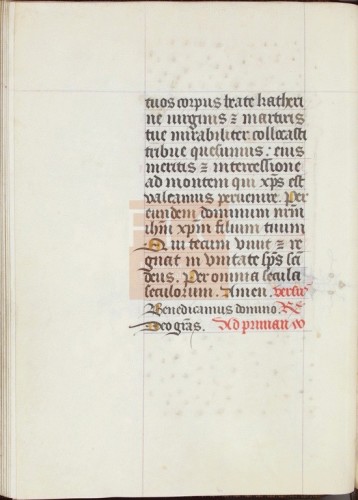 tuos corpus beate katheri
ne uirginis ⁊ martiris
tue mirabiliter collocasti
tribue quesumus: eius
meritis ⁊ intercessione
ad montem qui xp̄s est
valeamus peruenire. Per
eundem dominum nr̄m
ih̄m xp̄m filium tuum
Qui tecum viuit ⁊ re
gnat in vnitate sp̄s sc̄i
deus. Per omnia secula
seculorum. Amen. versꝰ
Benedicamus domino. R̄
Deo gr̄as. Ad primam